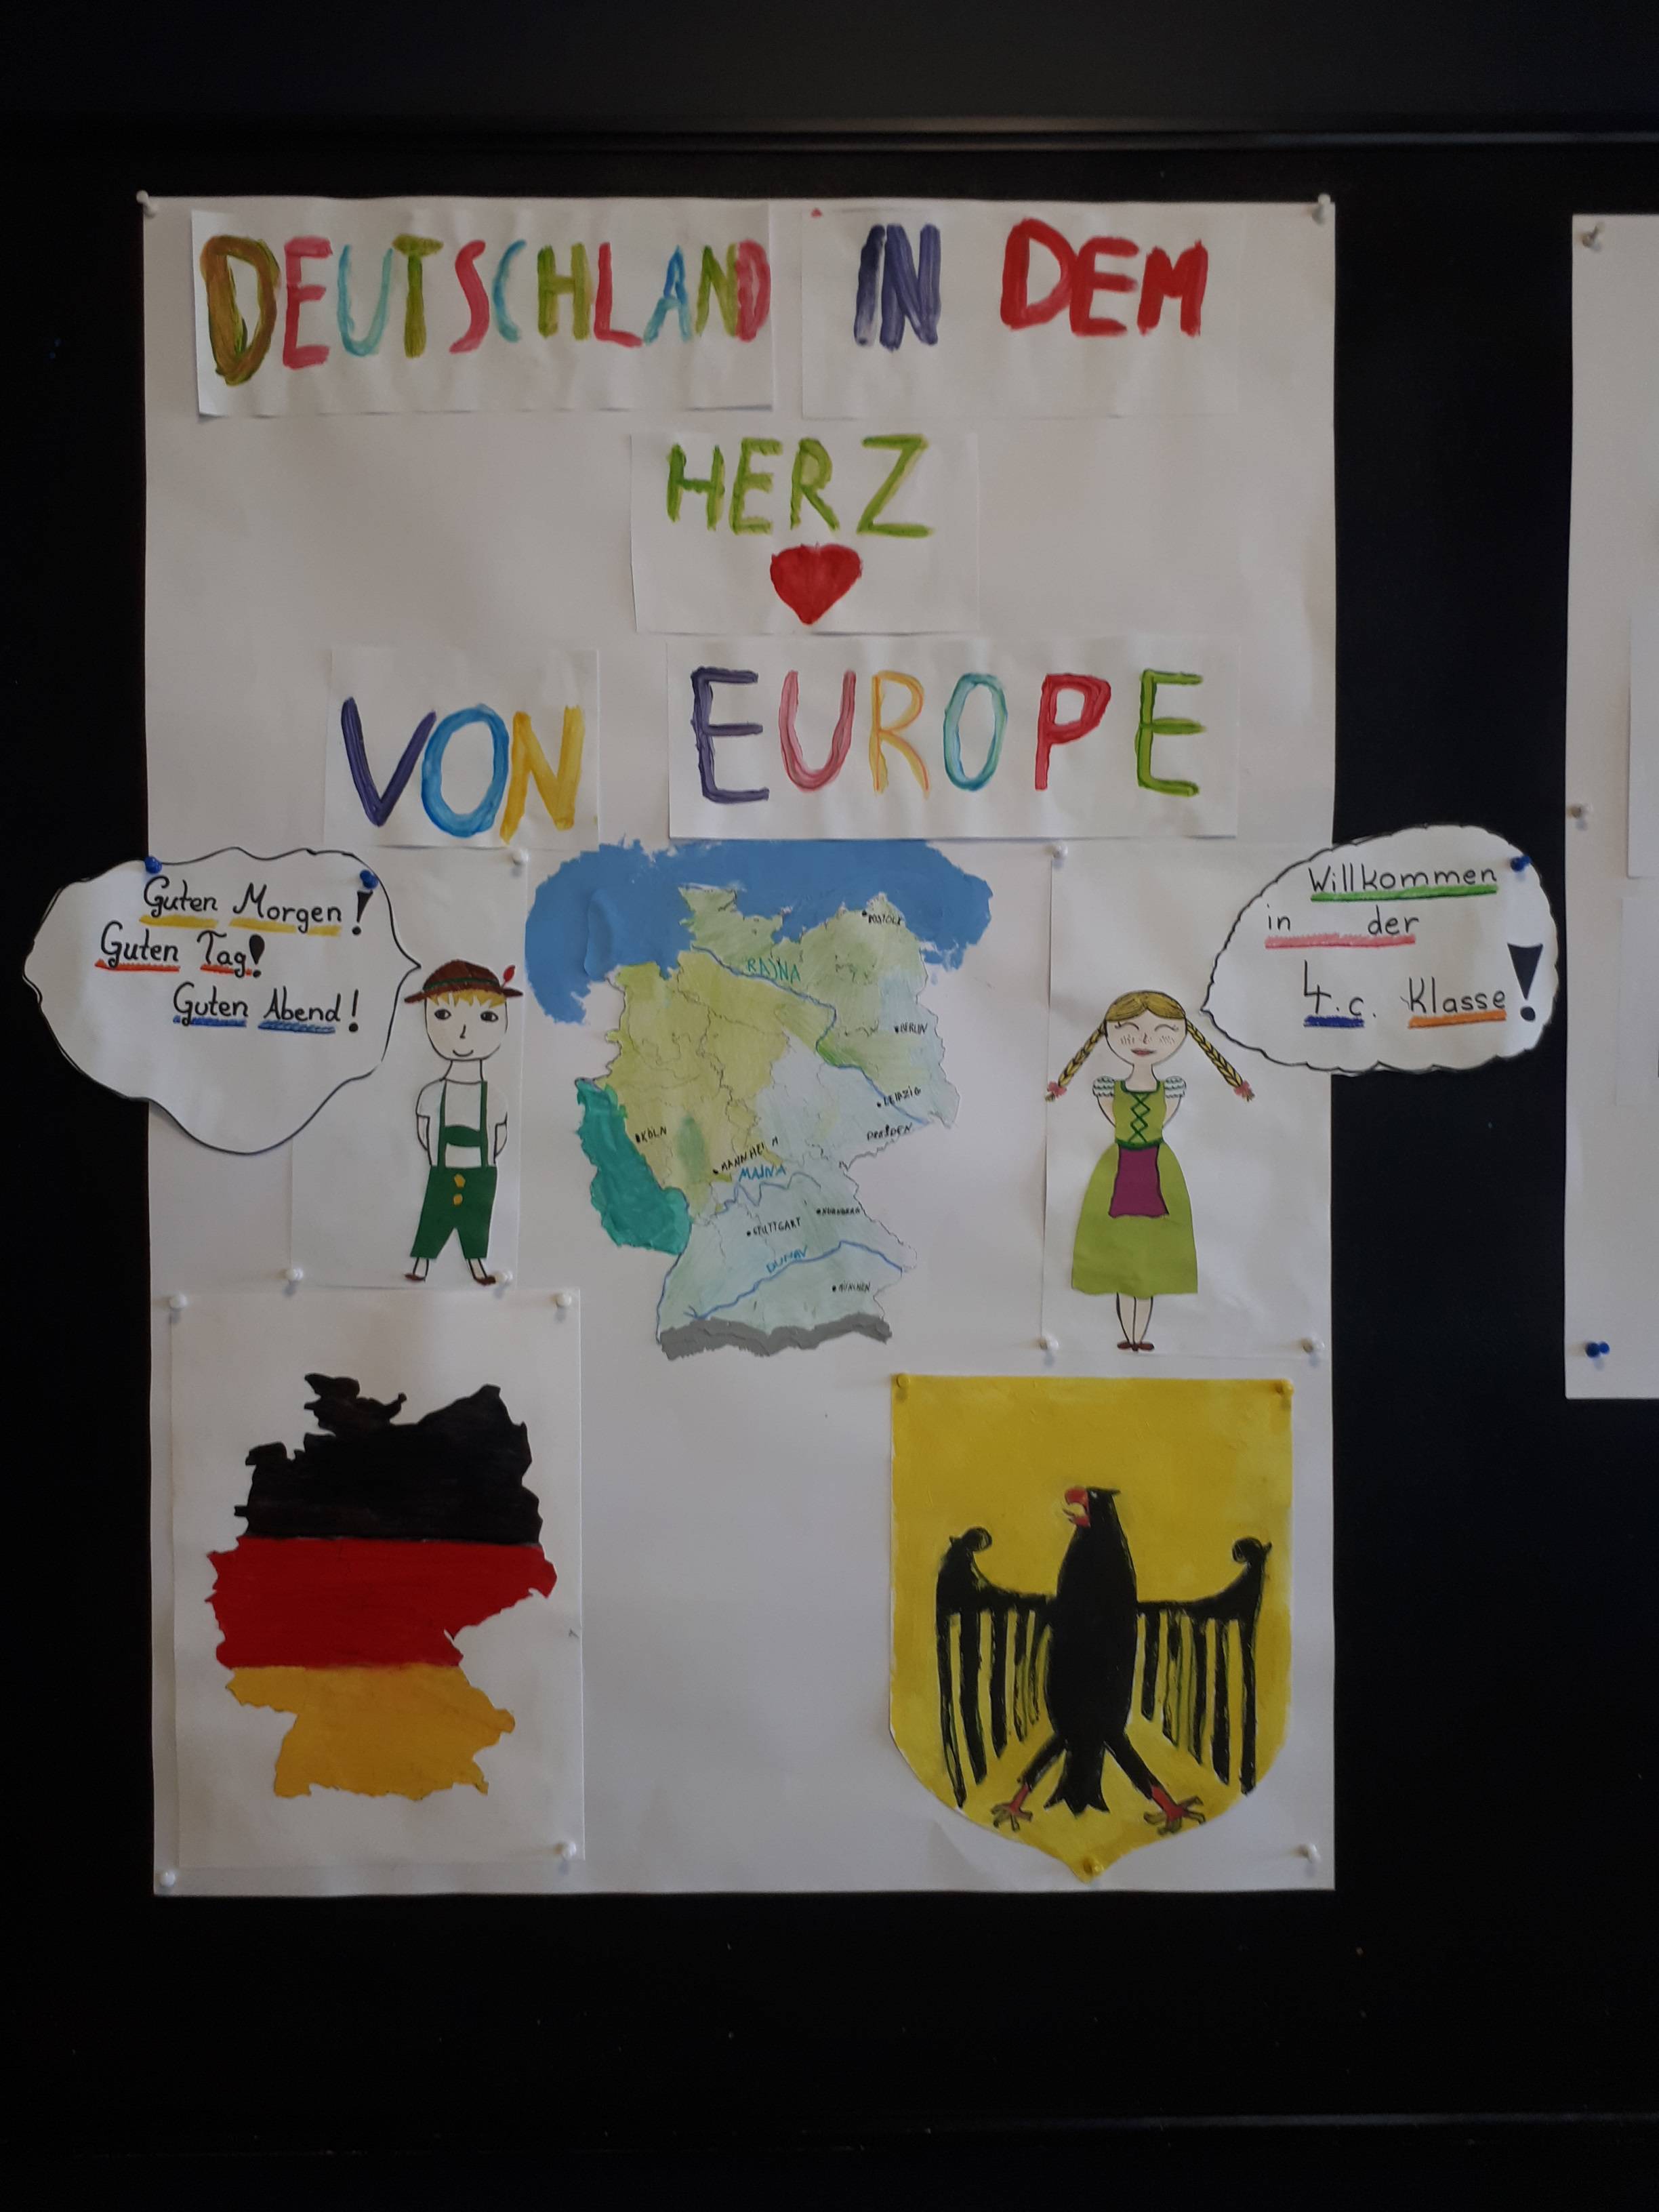 DEUTSCHLAND IN DEM
HERZ
VON EUROPE
Guten Morgen!
Guten Tag!
Guten Abend!
Willkommen
in der
4.c. Klasse!
ROSTOCK
RAJNA
BERLIN
LEIPZIG
DRESDEN
KÖLN
MANNHEIM
MAJNA
NÜRNBERG
STUTTGART
DUNAV
MÜNCHEN